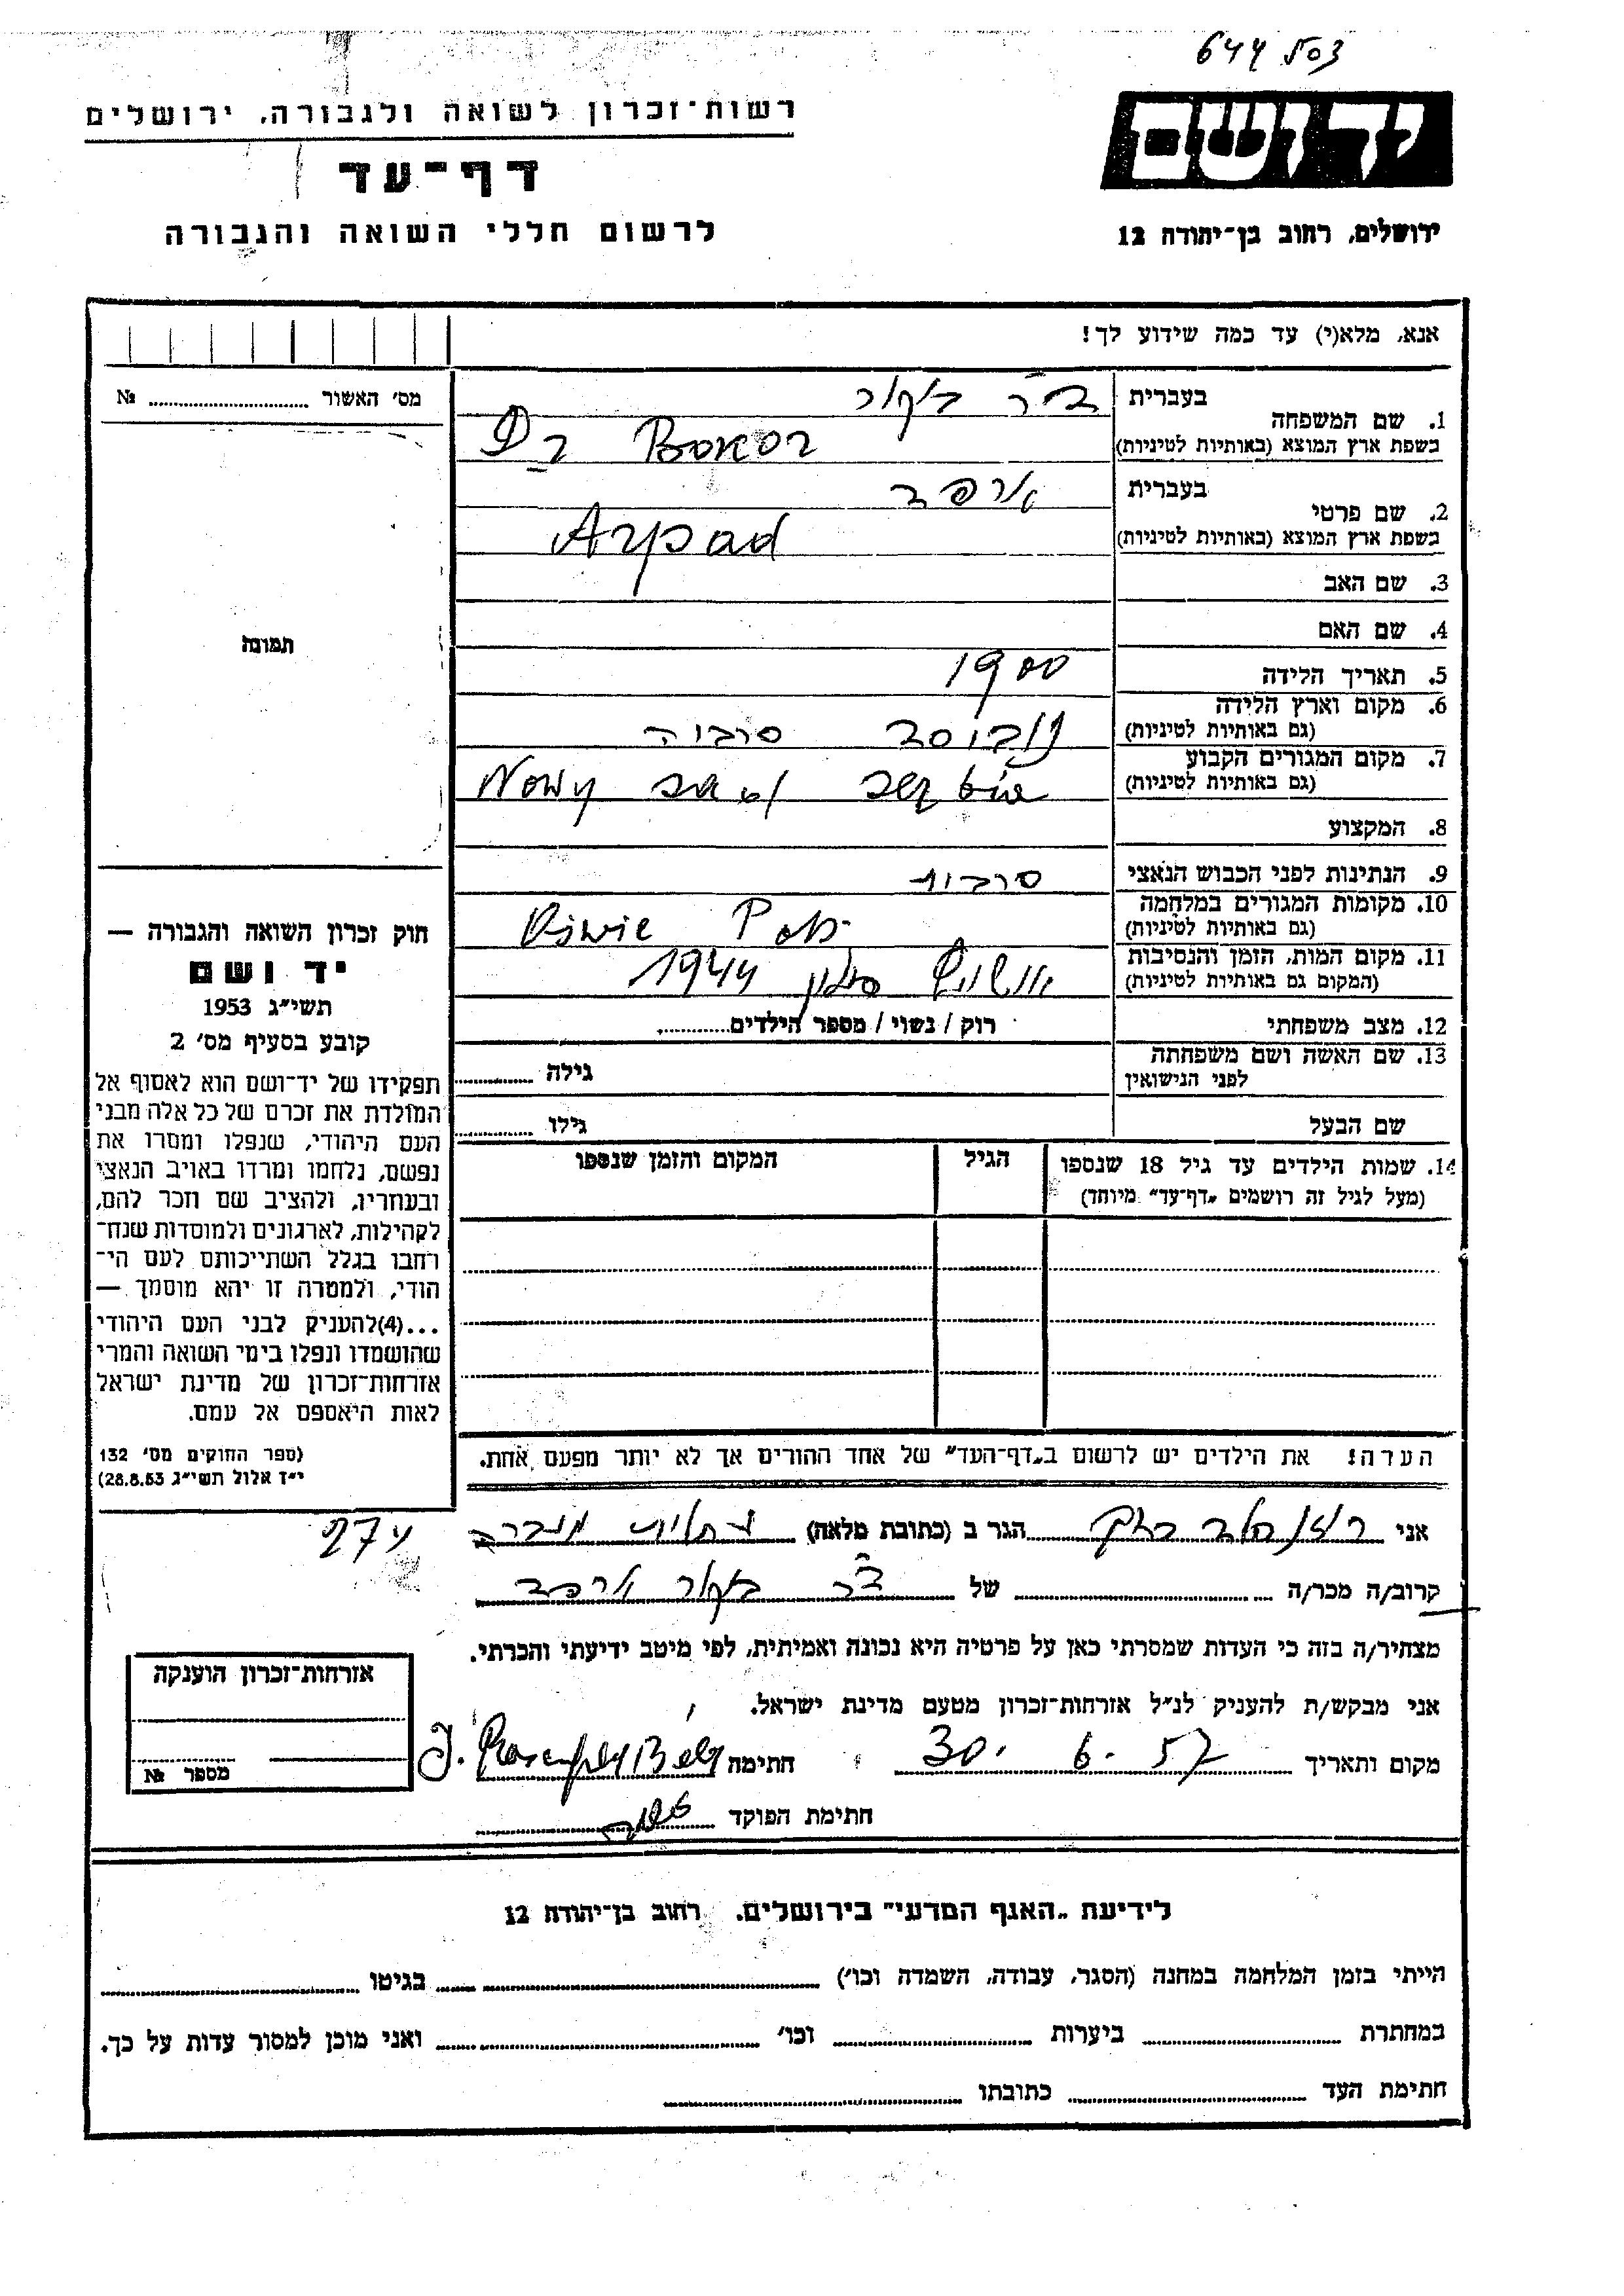 644 503
רשות־זכרון לשואה ולגבורה, ירושלים
יד ושם
דף־עד
לרשום חללי השואה והגבורה
ירושלים, רחוב בן־יהודה 12
אנא, מלא(י) עד כמה שידוע לך!
מס׳ האשור № 
תמונה
1. שם המשפחה
בעברית ד״ר בוקור
בשפת ארץ המוצא (באותיות לטיניות) Dr Bokor
2. שם פרטי
בעברית ארפד
בשפת ארץ המוצא (באותיות לטיניות) Arpad
3. שם האב
4. שם האם
5. תאריך הלידה 1900
6. מקום וארץ הלידה
(גם באותיות לטיניות) נוביסד סרביה
7. מקום המגורים הקבוע
(גם באותיות לטיניות) Nowy sad
8. המקצוע
9. הנתינות לפני הכבוש הנאצי סרבית
10. מקומות המגורים במלחמה
(גם באותיות לטיניות)
11. מקום המות, הזמן והנסיבות
(המקום גם באותיות לטיניות) 1944
12. מצב משפחתי רוק / נשוי / מספר הילדים
13. שם האשה ושם משפחתה
לפני הנישואין גילה
שם הבעל גילו
14. שמות הילדים עד גיל 18 שנספו
(מעל לגיל זה רושמים „דף־עד״ מיוחד)
הגיל
המקום והזמן שנספו
הערה! את הילדים יש לרשום ב„דף־העד״ של אחד ההורים אך לא יותר מפעם אחת.
חוק זכרון השואה והגבורה —
יד ושם
תשי״ג 1953
קובע בסעיף מס׳ 2
תפקידו של יד־ושם הוא לאסוף אל
המולדת את זכרם של כל אלה מבני
העם היהודי, שנפלו ומסרו את
נפשם, נלחמו ומרדו באויב הנאצי
ובעוזריו, ולהציב שם וזכר להם,
לקהילות, לארגונים ולמוסדות שנח־
רבו בגלל השתייכותם לעם הי־
הודי, ולמטרה זו יהא מוסמך —
...(4)להעניק לבני העם היהודי
שהושמדו ונפלו בימי השואה והמרי
אזרחות־זכרון של מדינת ישראל
לאות היאספם אל עמם.
(ספר החוקים מס׳ 132
י״ז אלול תשי״ג 28.8.53)
274
אני הגר ב (כתובת מלאה)
קרוב/ה מכר/ה של ד״ר בוקור ארפד
מצהיר/ה בזה כי העדות שמסרתי כאן על פרטיה היא נכונה ואמיתית, לפי מיטב ידיעתי והכרתי.
אני מבקש/ת להעניק לנ״ל אזרחות־זכרון מטעם מדינת ישראל.
מקום ותאריך 30. 6. 57 חתימה
חתימת הפוקד
אזרחות־זכרון הוענקה
מספר №
לידיעת „האגף המדעי״ בירושלים. רחוב בן־יהודה 12
הייתי בזמן המלחמה במחנה (הסגר, עבודה, השמדה וכו׳) בגיטו
במחתרת ביערות וכו׳ ואני מוכן למסור עדות על כך.
חתימת העד כתובתו